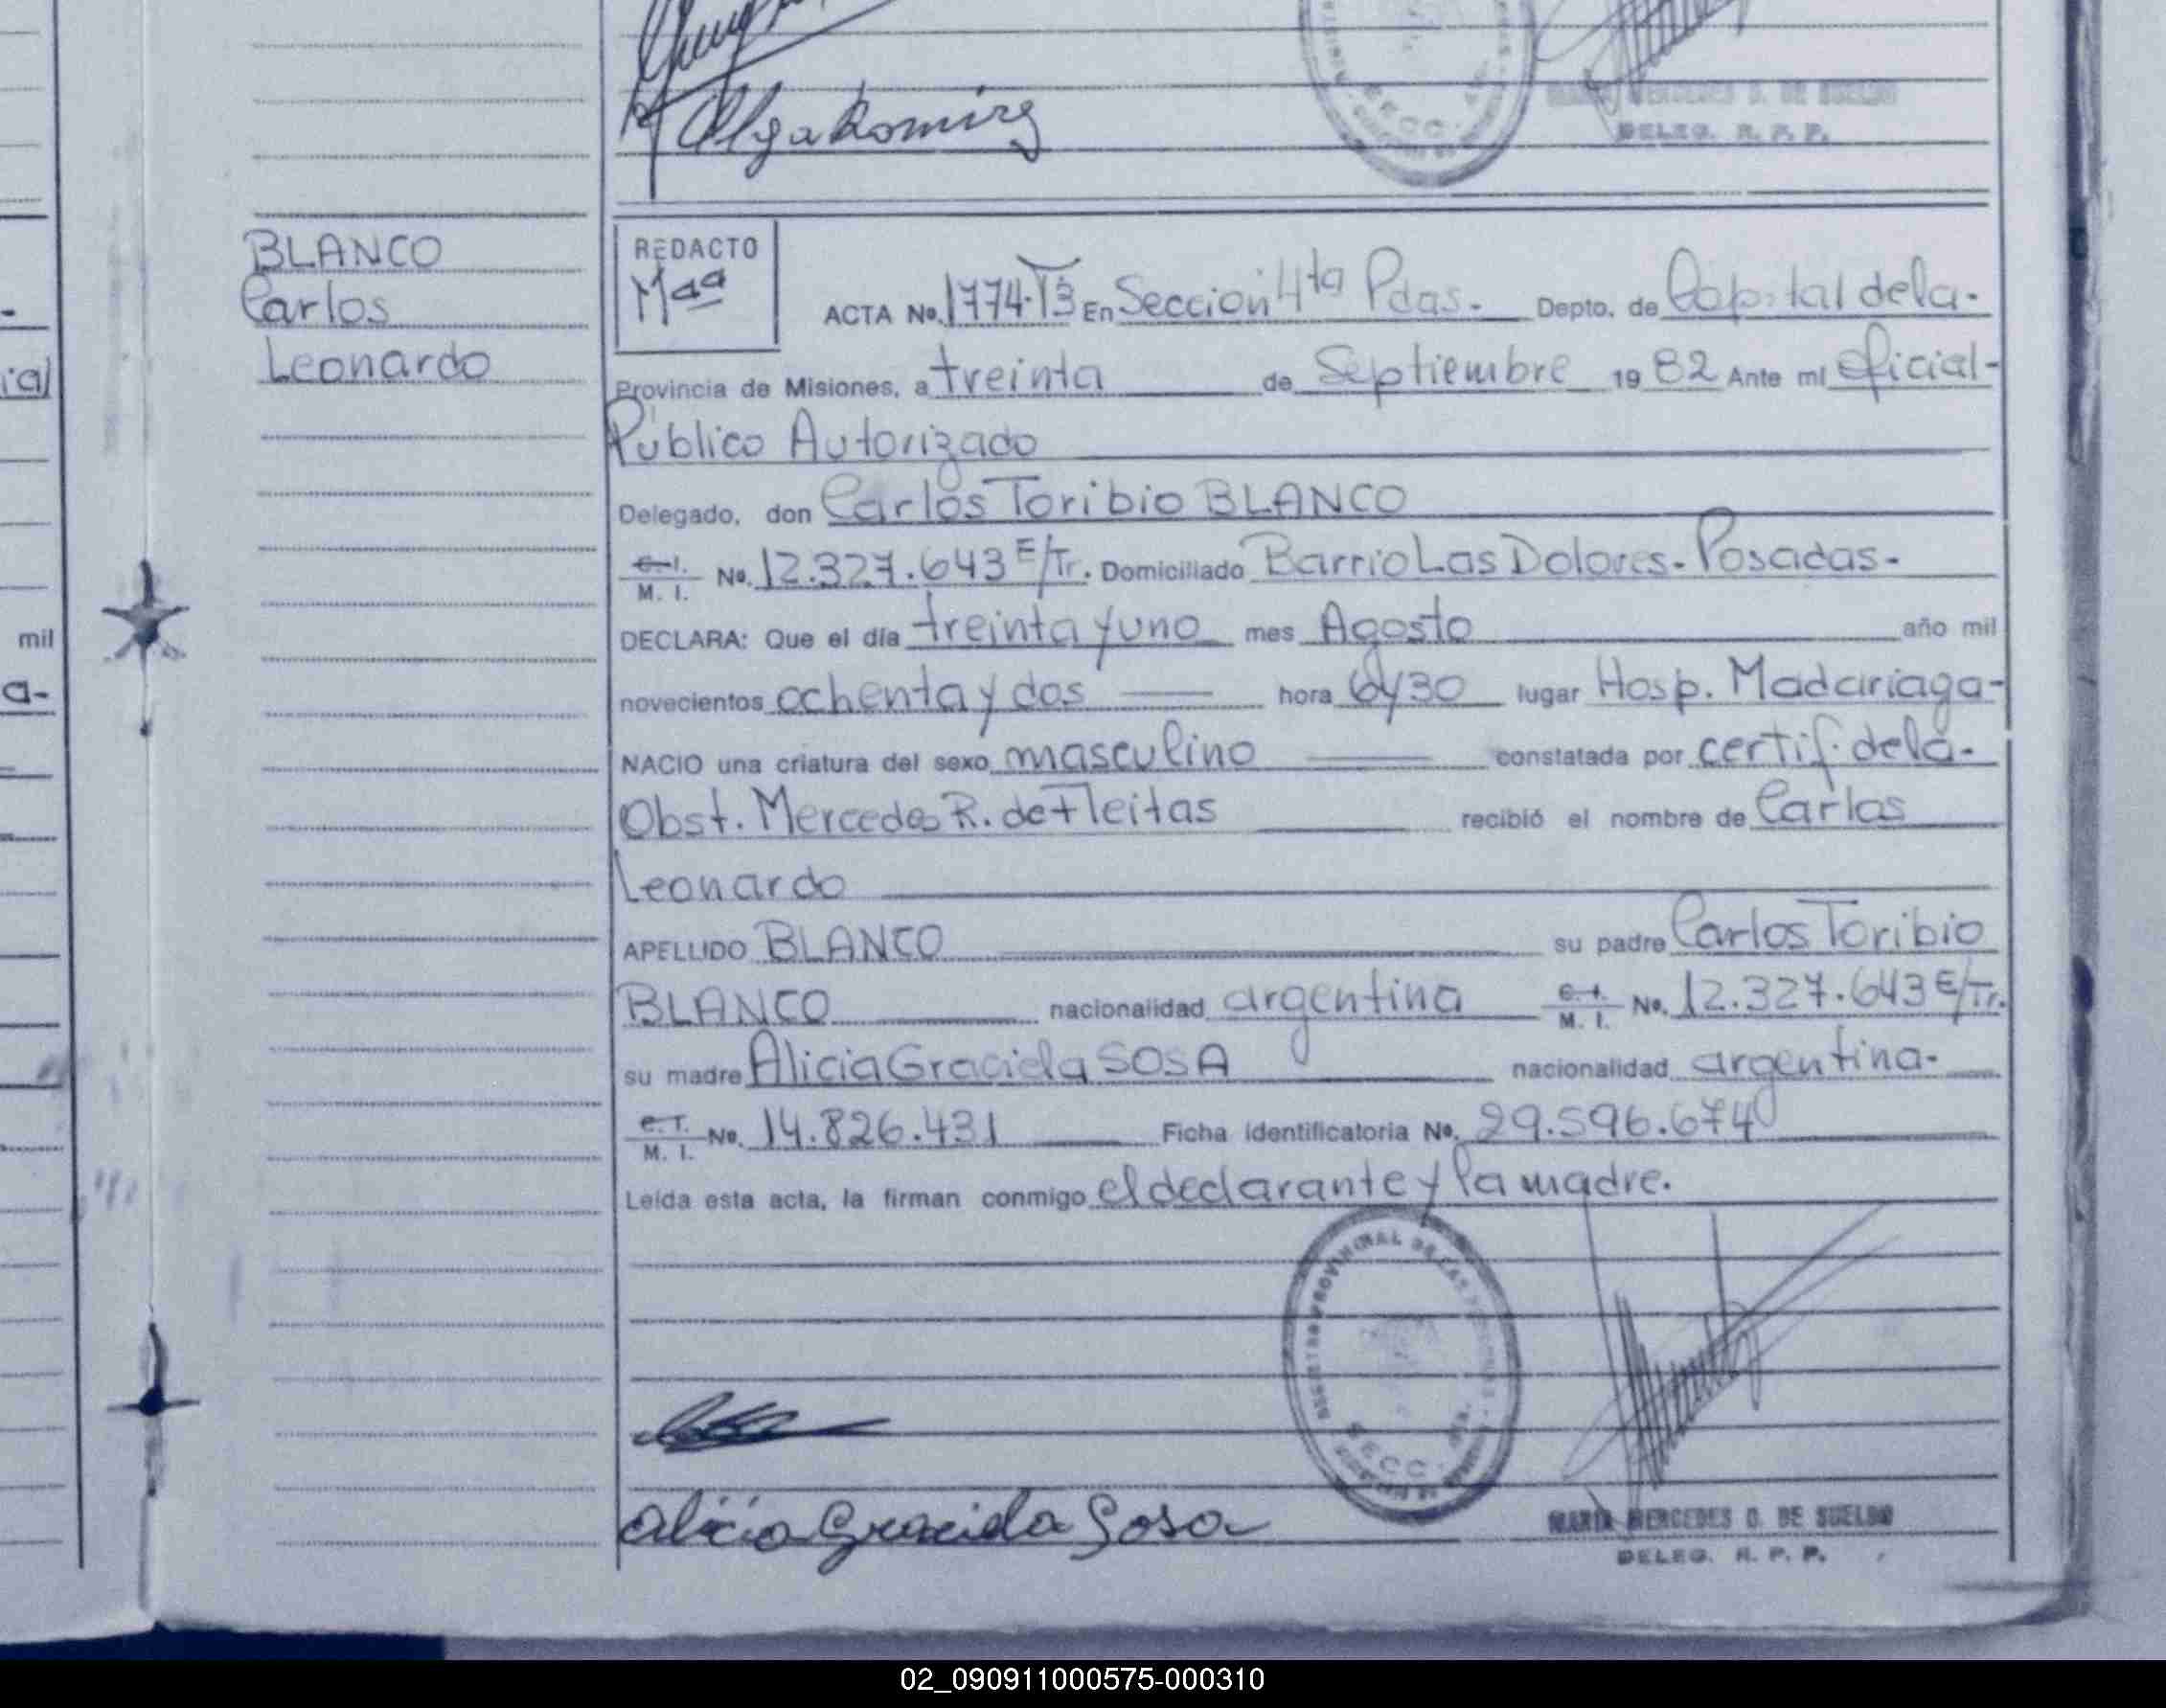 Olga Ramirez
MARIA MERCEDES D. DE SUELDO
DELEG. R. P. P.
BLANCO
Carlos
Leonardo
REDACTO
ACTA No. 1774-T3 En Sección 4ta Pdas. Depto. de Capital de la-
Provincia de Misiones, a treinta de Septiembre 19 82 Ante mí Oficial-
Público Autorizado
Delegado, don Carlos Toribio BLANCO
C. I. / M. I. No. 12.327.643 E/Tr. Domiciliado Barrio Las Dolores-Posadas-
DECLARA: Que el día treinta y uno mes Agosto año mil
novecientos ochenta y dos hora 6y30 lugar Hosp. Madariaga-
NACIO una criatura del sexo masculino constatada por certif. de la-
Obst. Mercedes R. de Fleitas recibió el nombre de Carlos
Leonardo
APELLIDO BLANCO su padre Carlos Toribio
BLANCO nacionalidad argentina C. I. / M. I. No. 12.327.643 E/Tr.
su madre Alicia Graciela SOSA nacionalidad argentina-
C. I. / M. I. No. 14.826.431 Ficha Identificatoria No. 29.596.674
Leída esta acta, la firman conmigo el declarante y la madre.
REGISTRO PROVINCIAL DE LAS PERSONAS
SECC. 4ta.
alicia Graciela Sosa
MARIA MERCEDES D. DE SUELDO
DELEG. R. P. P.
ial
mil
a-
02_090911000575-000310